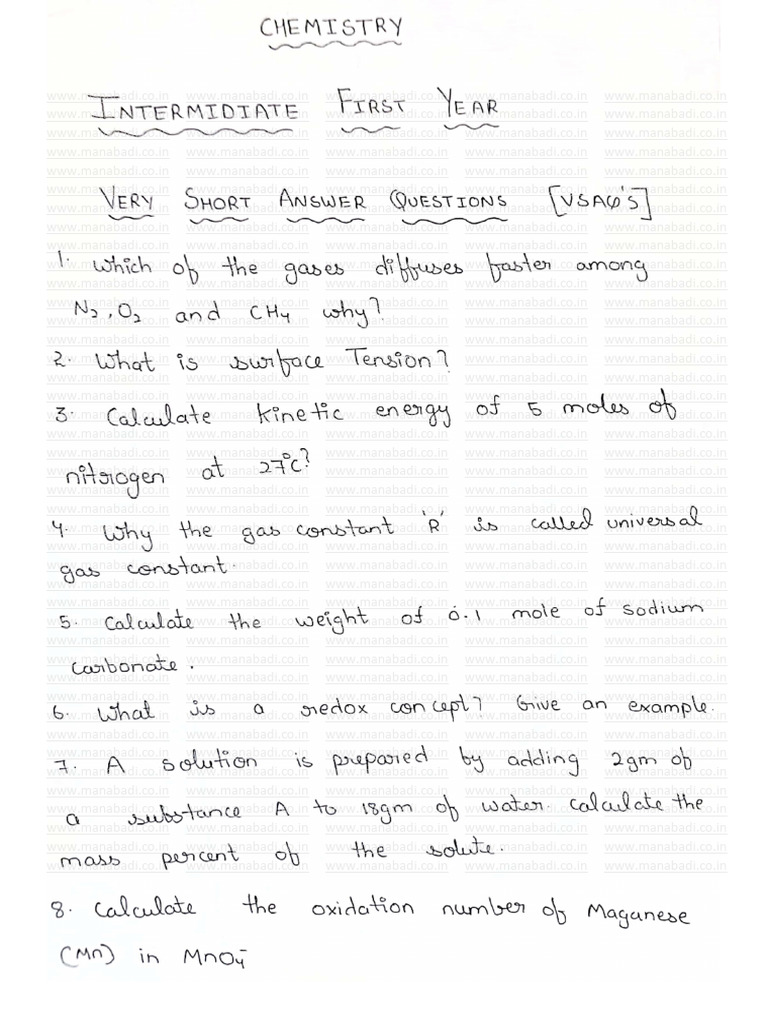 CHEMISTRY
INTERMIDIATE FIRST YEAR
VERY SHORT ANSWER QUESTIONS [VSAQ'S]
1. Which of the gases diffuses faster among
N2, O2 and CH4 why?
2. What is surface Tension?
3. Calculate kinetic energy of 5 moles of
nitrogen at 27°C?
4. Why the gas constant 'R' is called universal
gas constant.
5. Calculate the weight of 0.1 mole of sodium
carbonate.
6. What is a redox concept? Give an example.
7. A solution is prepared by adding 2gm of
a substance A to 18gm of water. calculate the
mass percent of the solute.
8. Calculate the oxidation number of Maganese
(Mn) in MnO4⁻
www.manabadi.co.in